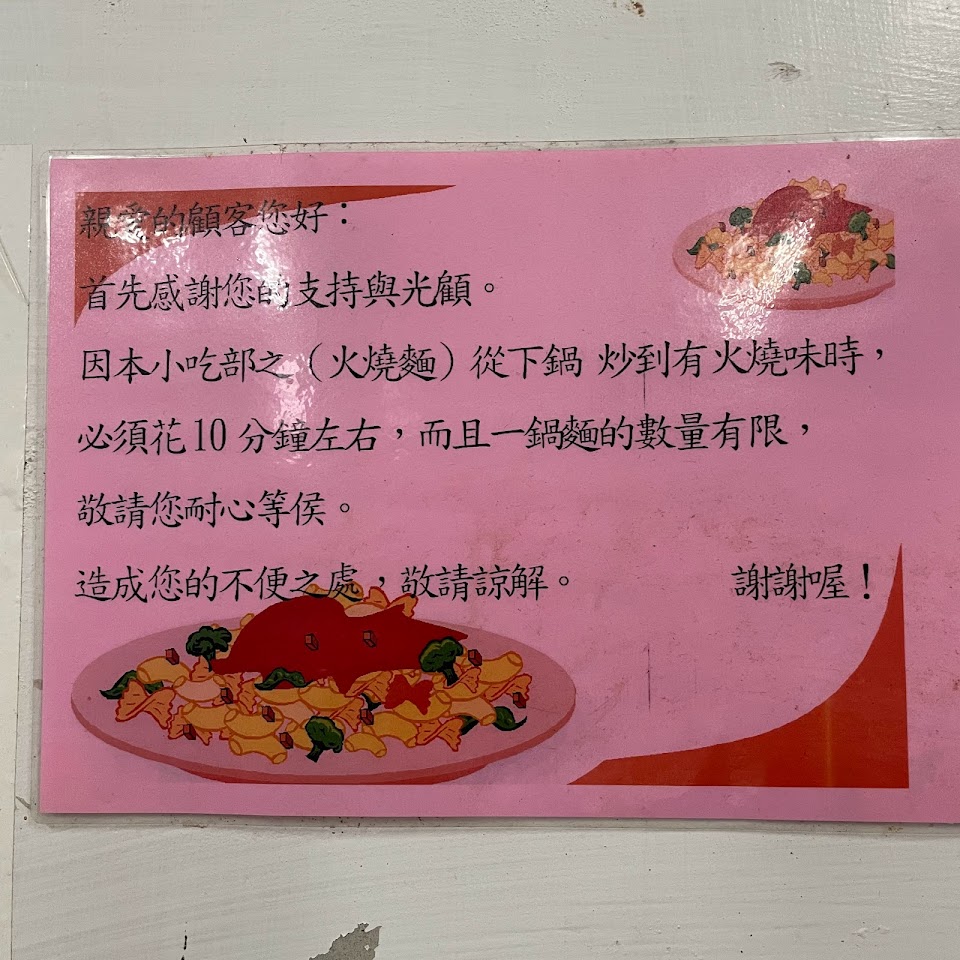 親愛的顧客您好：
首先感謝您的支持與光顧。
因本小吃部之（火燒麵）從下鍋 炒到有火燒味時，
必須花10分鐘左右，而且一鍋麵的數量有限，
敬請您耐心等侯。
造成您的不便之處，敬請諒解。 謝謝喔！